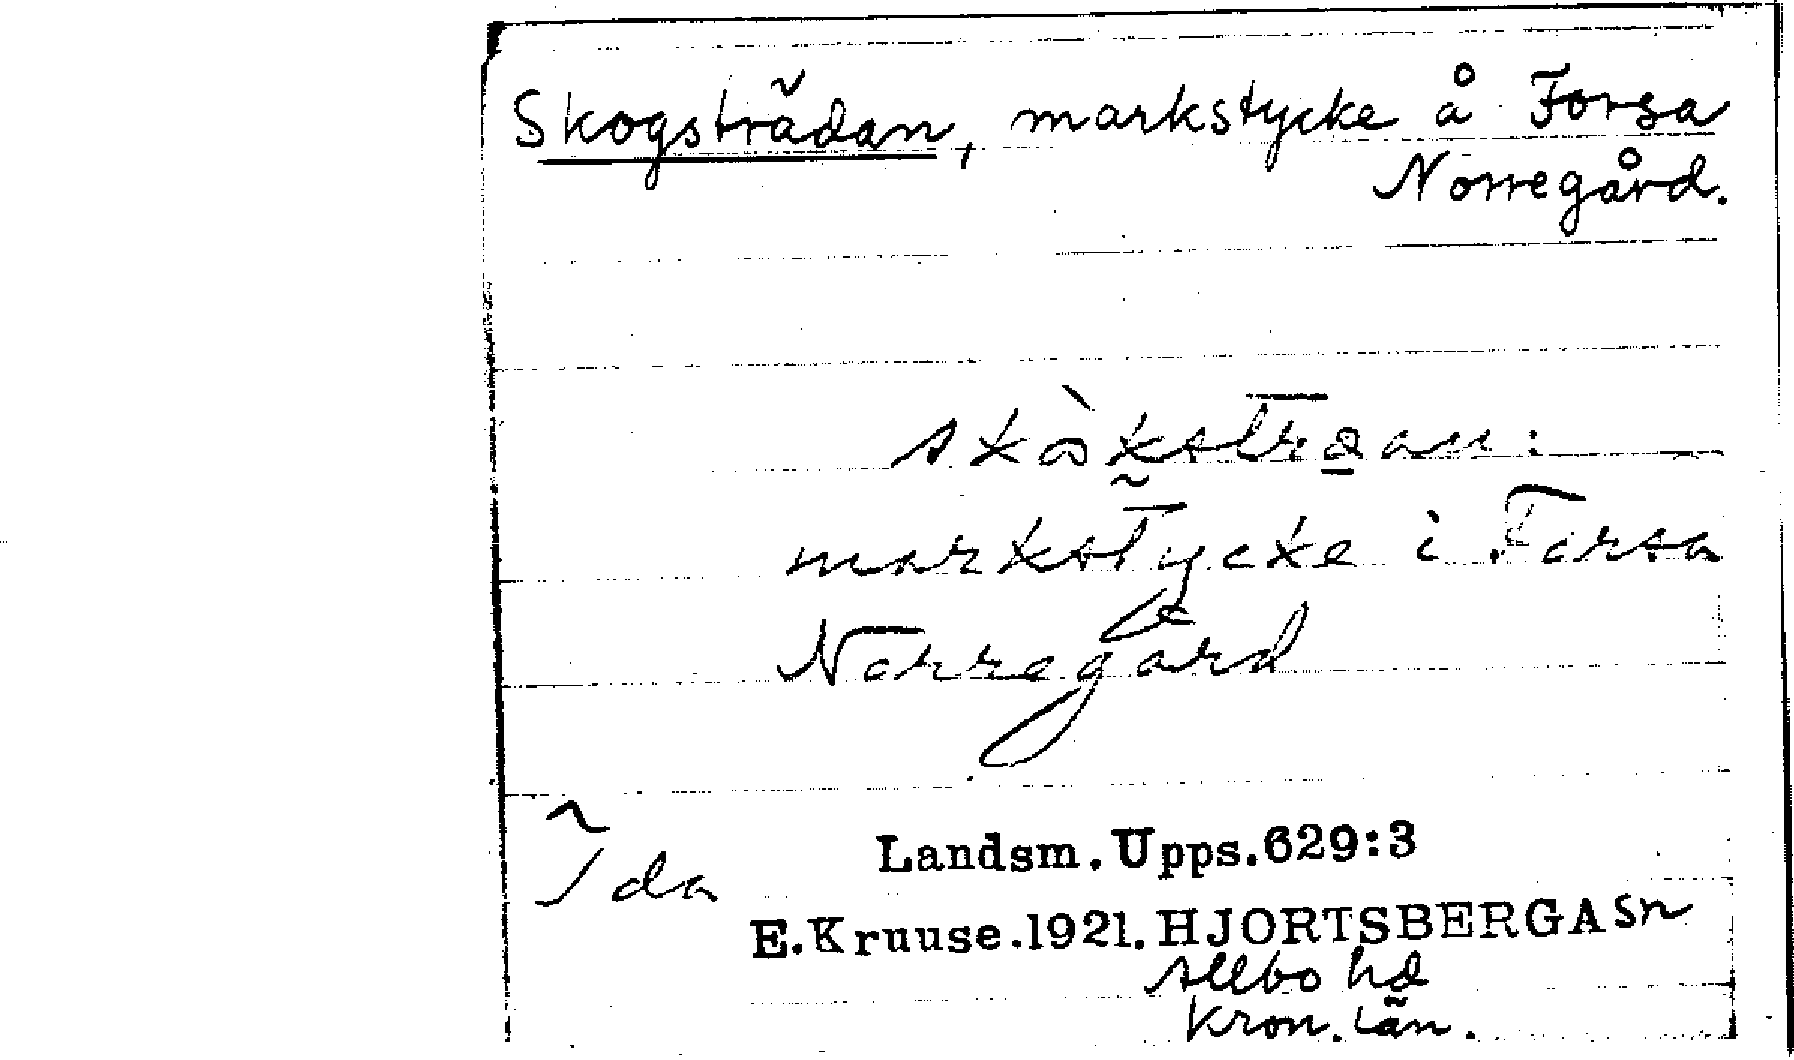 Skogsträdan, markstycke å Forsa
Norregård.
markstycke i Forsa
Norregård
Ida
Landsm. Upps. 629:3
E. Kruuse. 1921. HJORTSBERGA sn
Allbo hd
Kron. län.